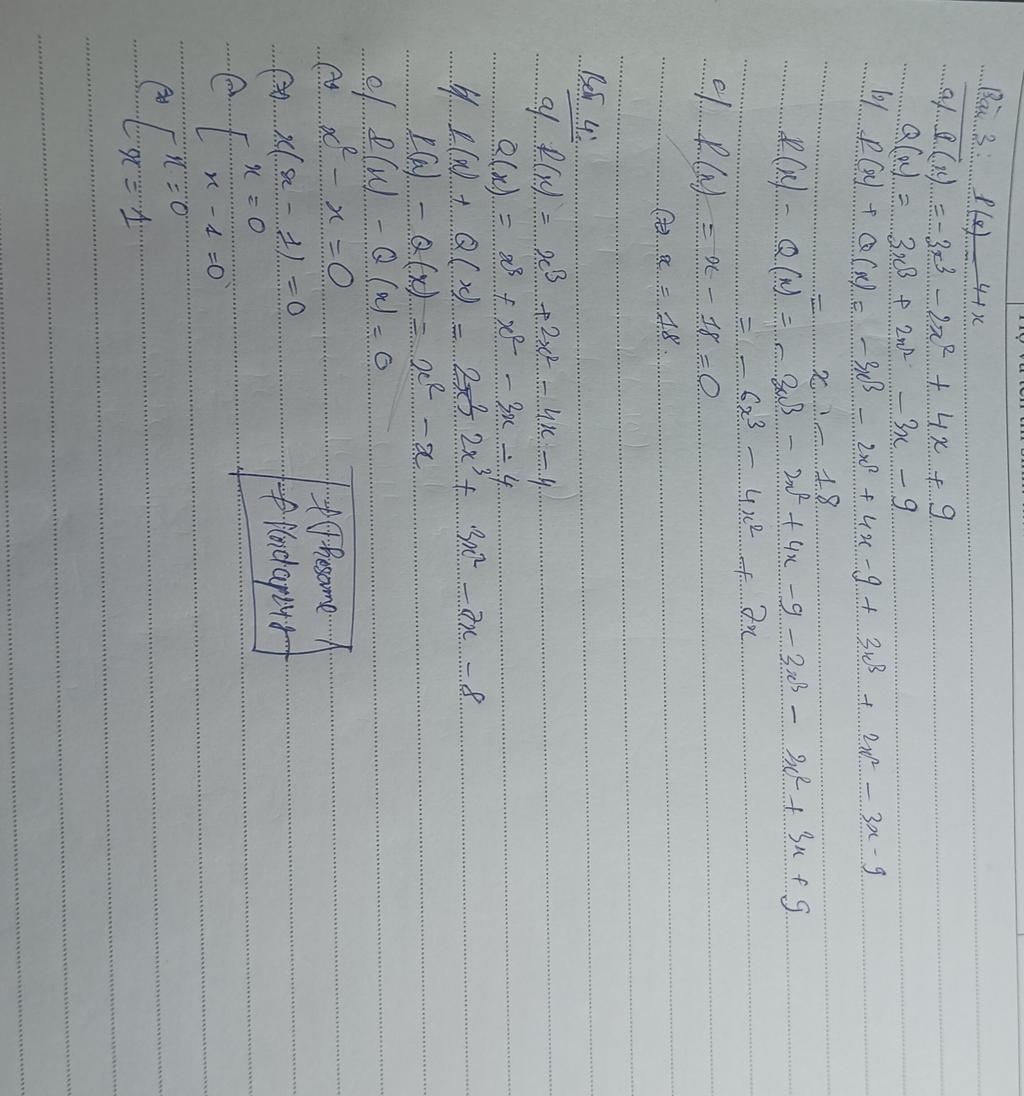 Bài 3: P(x) 4+x
a) P(x) = -3x³ - 2x² + 4x + 9
Q(x) = 3x³ + 2x² - 3x - 9
b) P(x) + Q(x) = -3x³ - 2x² + 4x - 9 + 3x³ + 2x² - 3x - 9
= x - 18
P(x) - Q(x) = -3x³ - 2x² + 4x - 9 - 3x³ - 2x² + 3x + 9
= -6x³ - 4x² + 7x
c) P(x) = x - 18 = 0
(=) x = 18.
Bài 4:
a) P(x) = x³ + 2x² - 4x - 4
Q(x) = x³ + x² - 3x - 4
b) P(x) + Q(x) = 2x³ + 3x² - 7x - 8
P(x) - Q(x) = x² - x
c) P(x) - Q(x) = 0
(=) x² - x = 0
(=) x(x - 1) = 0
(=) [ x = 0
x - 1 = 0
(=) [ x = 0
x = 1